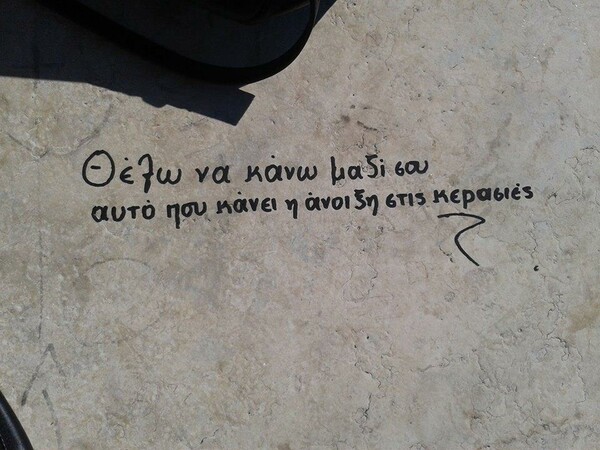 Θέλω να κάνω μαζί σου
αυτό που κάνει η άνοιξη στις κερασιές